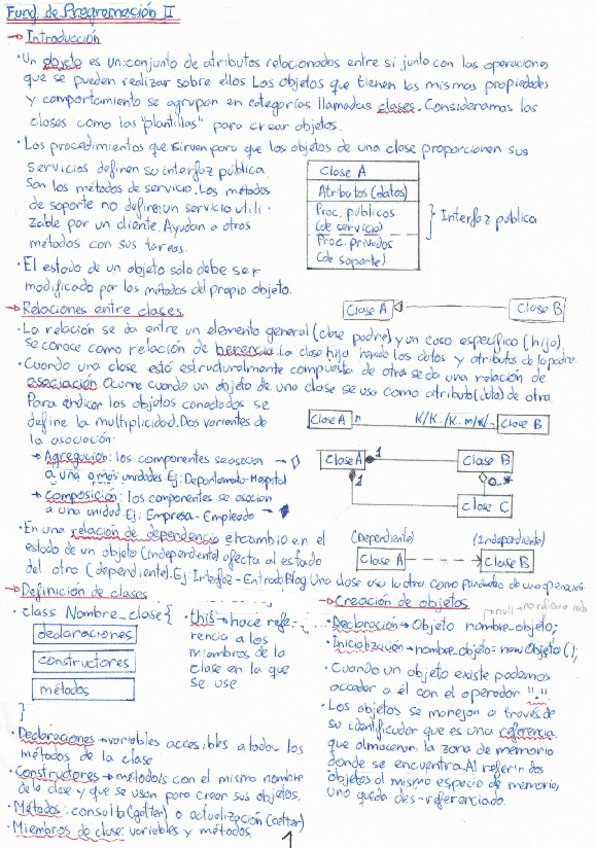 Fund. de Programación II
→ Introducción
• Un objeto es un conjunto de atributos relacionados entre sí junto con las operaciones
que se pueden realizar sobre ellos. Los objetos que tienen las mismas propiedades
y comportamiento se agrupan en categorías llamadas clases. Consideramos las
clases como las "plantillas" para crear objetos.
• Los procedimientos que sirven para que los objetos de una clase proporcionen sus
servicios definen su interfaz pública.
Son los métodos de servicio. Los métodos
de soporte no definen un servicio utili-
zable por un cliente. Ayudan a otros
métodos con sus tareas.
Clase A
Atributos (datos)
Proc. públicos
(de servicio)
Proc. privados
(de soporte)
Interfaz pública
• El estado de un objeto sólo debe ser
modificado por los métodos del propio objeto.
→ Relaciones entre clases
Clase A
Clase B
• La relación se da entre un elemento general (clase padre) y un caso específico (hijo).
Se conoce como relación de herencia. La clase hijo hereda los datos y atributos de la padre.
• Cuando una clase está estructuralmente compuesta de otra se da una relación de
asociación. Ocurre cuando un objeto de una clase se usa como atributo (dato) de otra.
Para indicar los objetos conectados se
define la multiplicidad. Dos variantes de
la asociación:
Clase A n
Clase B
→ Agregación: los componentes se asocian →
a una o más unidades Ej: Departamento-Hospital
→ Composición: los componentes se asocian →
a una unidad. Ej: Empresa-Empleado
Clase A 1
Clase B
1
0..*
Clase C
• En una relación de dependencia el cambio en el
estado de un objeto (independiente) afecta al estado
del otro (dependiente). Ej: Interfaz-EntradaBlog. Una clase usa la otra como parámetro de una operación
(Dependiente)
(Independiente)
Clase A
Clase B
→ Definición de clases
• class Nombre_clase {
declaraciones
constructores
métodos
}
• this → hace refe-
rencia a los
miembros de la
clase en la que
se use
• Declaraciones → variables accesibles a todos los
métodos de la clase
• Constructores → métodos con el mismo nombre
de la clase y que se usan para crear sus objetos.
• Métodos: consulta (getter) o actualización (setter)
• Miembros de clase: variables y métodos
→ Creación de objetos
null → no
• Declaración → Objeto nombre_objeto;
• Inicialización → nombre_objeto = new Objeto();
• Cuando un objeto existe podemos
acceder a él con el operador ".".
• Los objetos se manejan a través de
su identificador que es una referencia
que almacena la zona de memoria
donde se encuentra. Al referir dos
objetos al mismo espacio de memoria,
uno queda des-referenciado.
1